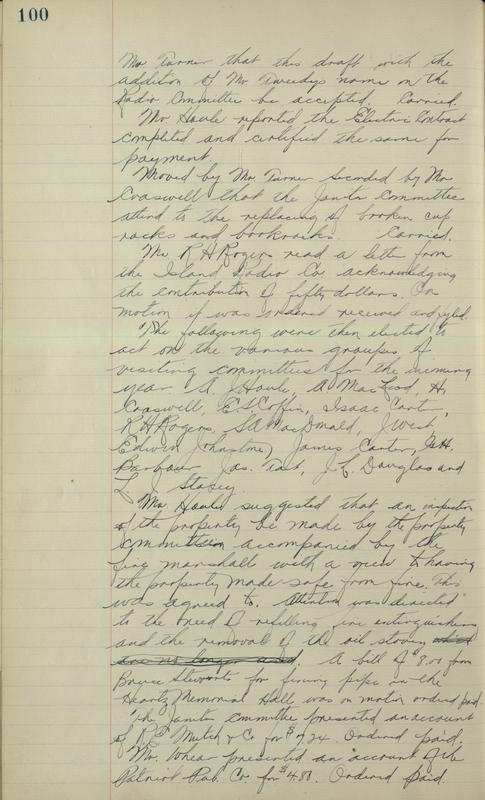 100
Mr Turner that this draft with the
addition of Mr Tweedys name on the
Radio Committee be accepted. Carried.
Mr Haule reported the Electric Contract
completed and certified the same for
payment.
Moved by Mr Turner Seconded by Mr
Craswell that the Janitor Committee
attend to the replacing of broken cup
racks and bookracks. Carried.
Mr. R H Rogers read a letter from
the Island Radio Co acknowledging
the contribution of fifty dollars. On
motion it was ordered received and fyled.
The following were then elected to
act on the various groups of
visiting committees for the incoming
year A. J. Haule, A MacLeod, H.
Craswell, E.S. Coffin, Isaac Carter,
R H Rogers, SA MacDonald, J West,
Edwin Johnstone, James Carter, G.H.
Barbour, Jas. Tait, J.L. Douglas and
L. J Stacey.
Mr. Haule suggested that an inspection
of the property be made by the property
committee accompanied by the
fire marshall with a view to having
the property made safe from fire. This
was agreed to. Attention was directed
to the need of refilling fire extinguishers
and the removal of the oil stoves which
are no longer used. A bill of $8.00 from
Bruce Stewarts for fixing pipe in the
Heartz Memorial Hall was on motion ordered paid.
The Janitor Committee presented an account
of Mutch & Co for $7.24. Ordered paid.
Mr. Whear presented an account of the
Patriot Pub. Co. for $4.88. Ordered paid.